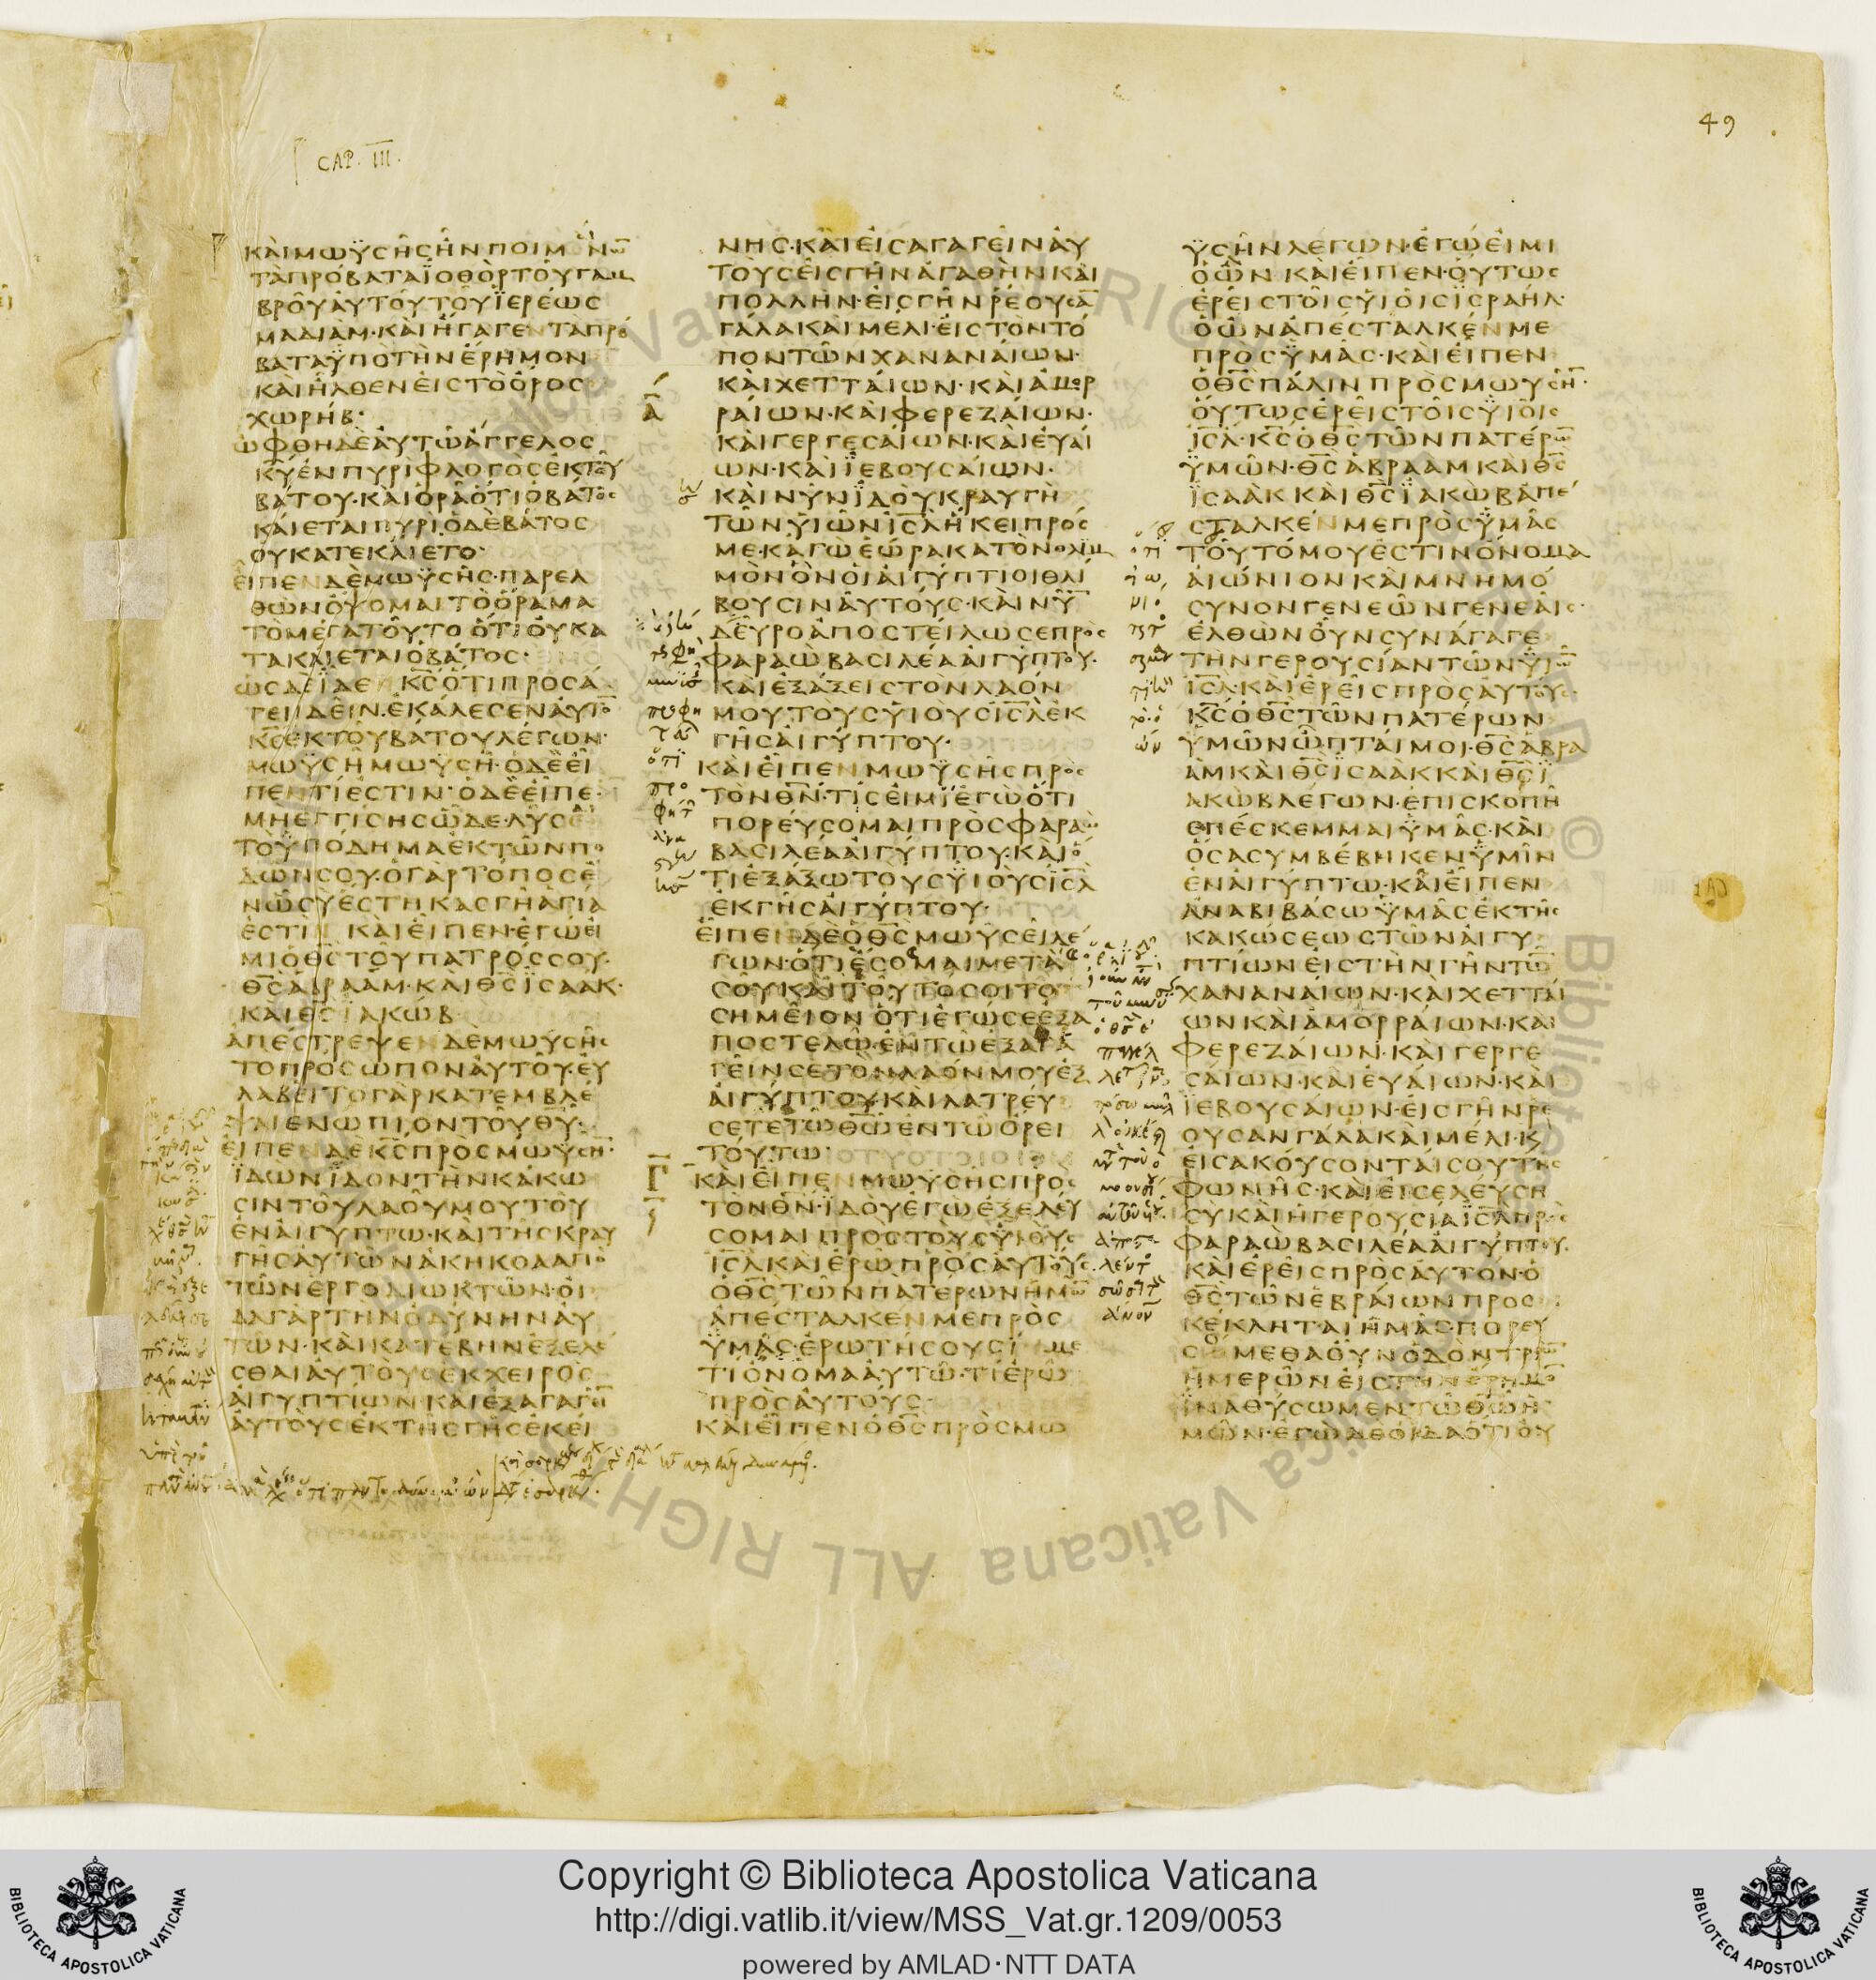 49
CAP. III.
ΚΑΙ ΜΩΫΣΗΣ ΗΝ ΠΟΙΜΑΙΝΩ̅
ΤΑ ΠΡΟΒΑΤΑ ΪΟΘΟΡ ΤΟΥ ΓΑΜ
ΒΡΟΥ ΑΥΤΟΥ ΤΟΥ ΪΕΡΕΩΣ
ΜΑΔΙΑΜ· ΚΑΙ ΗΓΑΓΕΝ ΤΑ ΠΡΟ
ΒΑΤΑ ΫΠΟ ΤΗΝ ΕΡΗΜΟΝ
ΚΑΙ ΗΛΘΕΝ ΕΙΣ ΤΟ ΟΡΟΣ
ΧΩΡΗΒ·
ΩΦΘΗ ΔΕ ΑΥΤΩ ΑΓΓΕΛΟΣ
Κ̅Υ̅ ΕΝ ΠΥΡΙ ΦΛΟΓΟΣ ΕΚ ΤΟΥ
ΒΑΤΟΥ· ΚΑΙ ΟΡΑ ΟΤΙ Ο ΒΑΤΟΣ
ΚΑΙΕΤΑΙ ΠΥΡΙ Ο ΔΕ ΒΑΤΟΣ
ΟΥ ΚΑΤΕΚΑΙΕΤΟ·
ΕΙΠΕΝ ΔΕ ΜΩΫΣΗΣ· ΠΑΡΕΛ
ΘΩΝ ΟΨΟΜΑΙ ΤΟ ΟΡΑΜΑ
ΤΟ ΜΕΓΑ ΤΟΥΤΟ ΟΤΙ ΟΥ ΚΑ
ΤΑΚΑΙΕΤΑΙ Ο ΒΑΤΟΣ·
ΩΣ ΔΕ ΪΔΕΝ Κ̅Σ̅ ΟΤΙ ΠΡΟΣΑ
ΓΕΙ ΔΕΙΝ· ΕΚΑΛΕΣΕΝ ΑΥΤΟ̅
Κ̅Σ̅ ΕΚ ΤΟΥ ΒΑΤΟΥ ΛΕΓΩΝ·
ΜΩΫΣΗ ΜΩΫΣΗ· Ο ΔΕ ΕΙ
ΠΕΝ ΤΙ ΕΣΤΙΝ· Ο ΔΕ ΕΙΠΕ·
ΜΗ ΕΓΓΙΣΗΣ ΩΔΕ· ΛΥΣΑΙ
ΤΟ ΫΠΟΔΗΜΑ ΕΚ ΤΩΝ ΠΟ
ΔΩΝ ΣΟΥ· Ο ΓΑΡ ΤΟΠΟΣ Ε
Ν Ω ΣΥ ΕΣΤΗΚΑΣ ΓΗ ΑΓΙΑ
ΕΣΤΙΝ ΚΑΙ ΕΙΠΕΝ· ΕΓΩ ΕΙ
ΜΙ Ο Θ̅Σ̅ ΤΟΥ ΠΑΤΡΟΣ ΣΟΥ·
Θ̅Σ̅ ΑΒΡΑΑΜ· ΚΑΙ Θ̅Σ̅ ΪΣΑΑΚ·
ΚΑΙ Θ̅Σ̅ ΪΑΚΩΒ·
ΑΠΕΣΤΡΕΨΕΝ ΔΕ ΜΩΥΣΗΣ
ΤΟ ΠΡΟΣΩΠΟΝ ΑΥΤΟΥ· ΕΥ
ΛΑΒΕΙΤΟ ΓΑΡ ΚΑΤΕΜΒΛΕ
ΨΑΙ ΕΝΩΠΙΟΝ ΤΟΥ Θ̅Υ̅·
ΕΙΠΕΝ ΔΕ Κ̅Σ̅ ΠΡΟΣ ΜΩΥΣΗ̅·
ΪΔΩΝ ΪΔΟΝ ΤΗΝ ΚΑΚΩ
ΣΙΝ ΤΟΥ ΛΑΟΥ ΜΟΥ ΤΟΥ
ΕΝ ΑΙΓΥΠΤΩ· ΚΑΙ ΤΗΣ ΚΡΑΥ
ΓΗΣ ΑΥΤΩΝ ΑΚΗΚΟΑ ΑΠΟ
ΤΩΝ ΕΡΓΟΔΙΩΚΤΩΝ· ΟΙ
ΔΑ ΓΑΡ ΤΗΝ ΟΔΥΝΗΝ ΑΥ
ΤΩΝ· ΚΑΙ ΚΑΤΕΒΗΝ ΕΞΕΛΕ
ΣΘΑΙ ΑΥΤΟΥΣ ΕΚ ΧΕΙΡΟΣ
ΑΙΓΥΠΤΙΩΝ ΚΑΙ ΕΞΑΓΑΓΕΙ̅
ΑΥΤΟΥΣ ΕΚ ΤΗΣ ΓΗΣ ΕΚΕΙ
ΝΗΣ· ΚΑΙ ΕΙΣΑΓΑΓΕΙΝ ΑΥ
ΤΟΥΣ ΕΙΣ ΓΗΝ ΑΓΑΘΗΝ ΚΑΙ
ΠΟΛΛΗΝ· ΕΙΣ ΓΗΝ ΡΕΟΥΣΑ̅
ΓΑΛΑ ΚΑΙ ΜΕΛΙ· ΕΙΣ ΤΟΝ ΤΟ
ΠΟΝ ΤΩΝ ΧΑΝΑΝΑΙΩΝ·
ΚΑΙ ΧΕΤΤΑΙΩΝ· ΚΑΙ ΑΜΟΡ
ΡΑΙΩΝ· ΚΑΙ ΦΕΡΕΖΑΙΩΝ·
ΚΑΙ ΓΕΡΓΕΣΑΙΩΝ· ΚΑΙ ΕΥΑΙ
ΩΝ· ΚΑΙ ΪΕΒΟΥΣΑΙΩΝ·
ΚΑΙ ΝΥΝ ΪΔΟΥ ΚΡΑΥΓΗ
ΤΩΝ ΥΙΩΝ Ι̅Σ̅Λ̅ ΗΚΕΙ ΠΡΟΣ
ΜΕ· ΚΑΓΩ ΕΩΡΑΚΑ ΤΟΝ ΘΛΙΜ
ΜΟΝ ΟΝ ΟΙ ΑΙΓΥΠΤΙΟΙ ΘΛΙ
ΒΟΥΣΙΝ ΑΥΤΟΥΣ· ΚΑΙ ΝΥ̅
ΔΕΥΡΟ ΑΠΟΣΤΕΙΛΩ ΣΕ ΠΡΟΣ
ΦΑΡΑΩ ΒΑΣΙΛΕΑ ΑΙΓΥΠΤΟΥ·
ΚΑΙ ΕΞΑΞΕΙΣ ΤΟΝ ΛΑΟΝ
ΜΟΥ ΤΟΥΣ ΥΙΟΥΣ Ι̅Σ̅Λ̅ ΕΚ
ΓΗΣ ΑΙΓΥΠΤΟΥ·
ΚΑΙ ΕΙΠΕΝ ΜΩΫΣΗΣ ΠΡΟΣ
ΤΟΝ Θ̅Ν̅· ΤΙΣ ΕΙΜΙ ΕΓΩ ΟΤΙ
ΠΟΡΕΥΣΟΜΑΙ ΠΡΟΣ ΦΑΡΑΩ
ΒΑΣΙΛΕΑ ΑΙΓΥΠΤΟΥ· ΚΑΙ Ο
ΤΙ ΕΞΑΞΩ ΤΟΥΣ ΥΙΟΥΣ Ι̅Σ̅Λ̅
ΕΚ ΓΗΣ ΑΙΓΥΠΤΟΥ·
ΕΙΠΕΝ ΔΕ Ο Θ̅Σ̅ ΜΩΥΣΕΙ ΛΕ
ΓΩΝ· ΟΤΙ ΕΣΟΜΑΙ ΜΕΤΑ
ΣΟΥ ΚΑΙ ΤΟΥΤΟ ΣΟΙ ΤΟ
ΣΗΜΕΙΟΝ ΟΤΙ ΕΓΩ ΣΕ ΕΞΑ
ΠΟΣΤΕΛΩ· ΕΝ ΤΩ ΕΞΑΓΑ
ΓΕΙΝ ΣΕ ΤΟΝ ΛΑΟΝ ΜΟΥ ΕΞ
ΑΙΓΥΠΤΟΥ· ΚΑΙ ΛΑΤΡΕΥ
ΣΕΤΕ ΤΩ Θ̅Ω̅ ΕΝ ΤΩ ΟΡΕΙ
ΤΟΥΤΩ·
ΚΑΙ ΕΙΠΕΝ ΜΩΥΣΗΣ ΠΡΟΣ
ΤΟΝ Θ̅Ν̅· ΪΔΟΥ ΕΓΩ ΕΞΕΛΕΥ
ΣΟΜΑΙ ΠΡΟΣ ΤΟΥΣ ΥΙΟΥΣ
Ι̅Σ̅Λ̅ ΚΑΙ ΕΡΩ ΠΡΟΣ ΑΥΤΟΥΣ·
Ο Θ̅Σ̅ ΤΩΝ ΠΑΤΕΡΩΝ ΗΜΩ̅
ΑΠΕΣΤΑΛΚΕΝ ΜΕ ΠΡΟΣ
ΥΜΑΣ· ΕΡΩΤΗΣΟΥΣΙΝ ΜΕ
ΤΙ ΟΝΟΜΑ ΑΥΤΩ· ΤΙ ΕΡΩ
ΠΡΟΣ ΑΥΤΟΥΣ·
ΚΑΙ ΕΙΠΕΝ Ο Θ̅Σ̅ ΠΡΟΣ ΜΩ
ΫΣΗΝ ΛΕΓΩΝ· ΕΓΩ ΕΙΜΙ
Ο ΩΝ· ΚΑΙ ΕΙΠΕΝ· ΟΥΤΩΣ
ΕΡΕΙΣ ΤΟΙΣ ΥΙΟΙΣ ΪΣΡΑΗΛ·
Ο ΩΝ ΑΠΕΣΤΑΛΚΕΝ ΜΕ
ΠΡΟΣ ΫΜΑΣ· ΚΑΙ ΕΙΠΕΝ
Ο Θ̅Σ̅ ΠΑΛΙΝ ΠΡΟΣ ΜΩΥΣΗ̅·
ΟΥΤΩΣ ΕΡΕΙΣ ΤΟΙΣ ΫΙΟΙΣ
Ι̅Σ̅Λ̅· Κ̅Σ̅ Ο Θ̅Σ̅ ΤΩΝ ΠΑΤΕΡΩ̅
ΫΜΩΝ· Θ̅Σ̅ ΑΒΡΑΑΜ ΚΑΙ Θ̅Σ̅
ΪΣΑΑΚ ΚΑΙ Θ̅Σ̅ ΪΑΚΩΒ ΑΠΕ
ΣΤΑΛΚΕΝ ΜΕ ΠΡΟΣ ΫΜΑΣ
ΤΟΥΤΟ ΜΟΥ ΕΣΤΙΝ ΟΝΟΜΑ
ΑΙΩΝΙΟΝ ΚΑΙ ΜΝΗΜΟ
ΣΥΝΟΝ ΓΕΝΕΩΝ ΓΕΝΕΑΙΣ·
ΕΛΘΩΝ ΟΥΝ ΣΥΝΑΓΑΓΕ
ΤΗΝ ΓΕΡΟΥΣΙΑΝ ΤΩΝ ΥΙΩ̅
Ι̅Σ̅Λ̅· ΚΑΙ ΕΡΕΙΣ ΠΡΟΣ ΑΥΤΟΥΣ·
Κ̅Σ̅ Ο Θ̅Σ̅ ΤΩΝ ΠΑΤΕΡΩΝ
ΫΜΩΝ ΩΠΤΑΙ ΜΟΙ· Θ̅Σ̅ ΑΒΡΑ
ΑΜ ΚΑΙ Θ̅Σ̅ ΪΣΑΑΚ ΚΑΙ Θ̅Σ̅ Ϊ
ΑΚΩΒ ΛΕΓΩΝ· ΕΠΙΣΚΟΠΗ
ΕΠΕΣΚΕΜΜΑΙ ΫΜΑΣ· ΚΑΙ
ΟΣΑ ΣΥΜΒΕΒΗΚΕΝ ΫΜΙΝ
ΕΝ ΑΙΓΥΠΤΩ· ΚΑΙ ΕΙΠΕΝ
ΑΝΑΒΙΒΑΣΩ ΫΜΑΣ ΕΚ ΤΗΣ
ΚΑΚΩΣΕΩΣ ΤΩΝ ΑΙΓΥ
ΠΤΙΩΝ ΕΙΣ ΤΗΝ ΓΗΝ ΤΩ̅
ΧΑΝΑΝΑΙΩΝ· ΚΑΙ ΧΕΤΤΑΙ
ΩΝ ΚΑΙ ΑΜΟΡΡΑΙΩΝ· ΚΑΙ
ΦΕΡΕΖΑΙΩΝ· ΚΑΙ ΓΕΡΓΕ
ΣΑΙΩΝ· ΚΑΙ ΕΥΑΙΩΝ· ΚΑΙ
ΪΕΒΟΥΣΑΙΩΝ· ΕΙΣ ΓΗΝ ΡΕ
ΟΥΣΑΝ ΓΑΛΑ ΚΑΙ ΜΕΛΙ· Κ
ΕΙΣΑΚΟΥΣΟΝΤΑΙ ΣΟΥ ΤΗΣ
ΦΩΝΗΣ· ΚΑΙ ΕΙΣΕΛΕΥΣΗ
ΣΥ ΚΑΙ Η ΓΕΡΟΥΣΙΑ Ι̅Σ̅Λ̅ ΠΡΟΣ
ΦΑΡΑΩ ΒΑΣΙΛΕΑ ΑΙΓΥΠΤΟΥ·
ΚΑΙ ΕΡΕΙΣ ΠΡΟΣ ΑΥΤΟΝ· Ο
Θ̅Σ̅ ΤΩΝ ΕΒΡΑΙΩΝ ΠΡΟΣ
ΚΕΚΛΗΤΑΙ ΗΜΑΣ· ΠΟΡΕΥ
ΣΟΜΕΘΑ ΟΥΝ ΟΔΟΝ ΤΡΙΩ̅
ΗΜΕΡΩΝ ΕΙΣ ΤΗΝ ΕΡΗΜΟ̅
ΪΝΑ ΘΥΣΩΜΕΝ ΤΩ Θ̅Ω̅ Η
ΜΩΝ· ΕΓΩ ΔΕ ΟΙΔΑ ΟΤΙ ΟΥ
Copyright © Biblioteca Apostolica Vaticana
http://digi.vatlib.it/view/MSS_Vat.gr.1209/0053
powered by AMLAD·NTT DATA
BIBLIOTECA APOSTOLICA VATICANA
BIBLIOTECA APOSTOLICA VATICANA